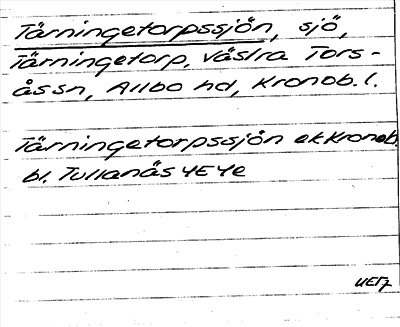 Tärningetorpssjön, sjö,
Tärningetorp, Västra Tors-
ås sn, Allbo hd, Kronob. l.
Tärningetorpssjön ek Kronob.
bl. Tullanäs 4E4e